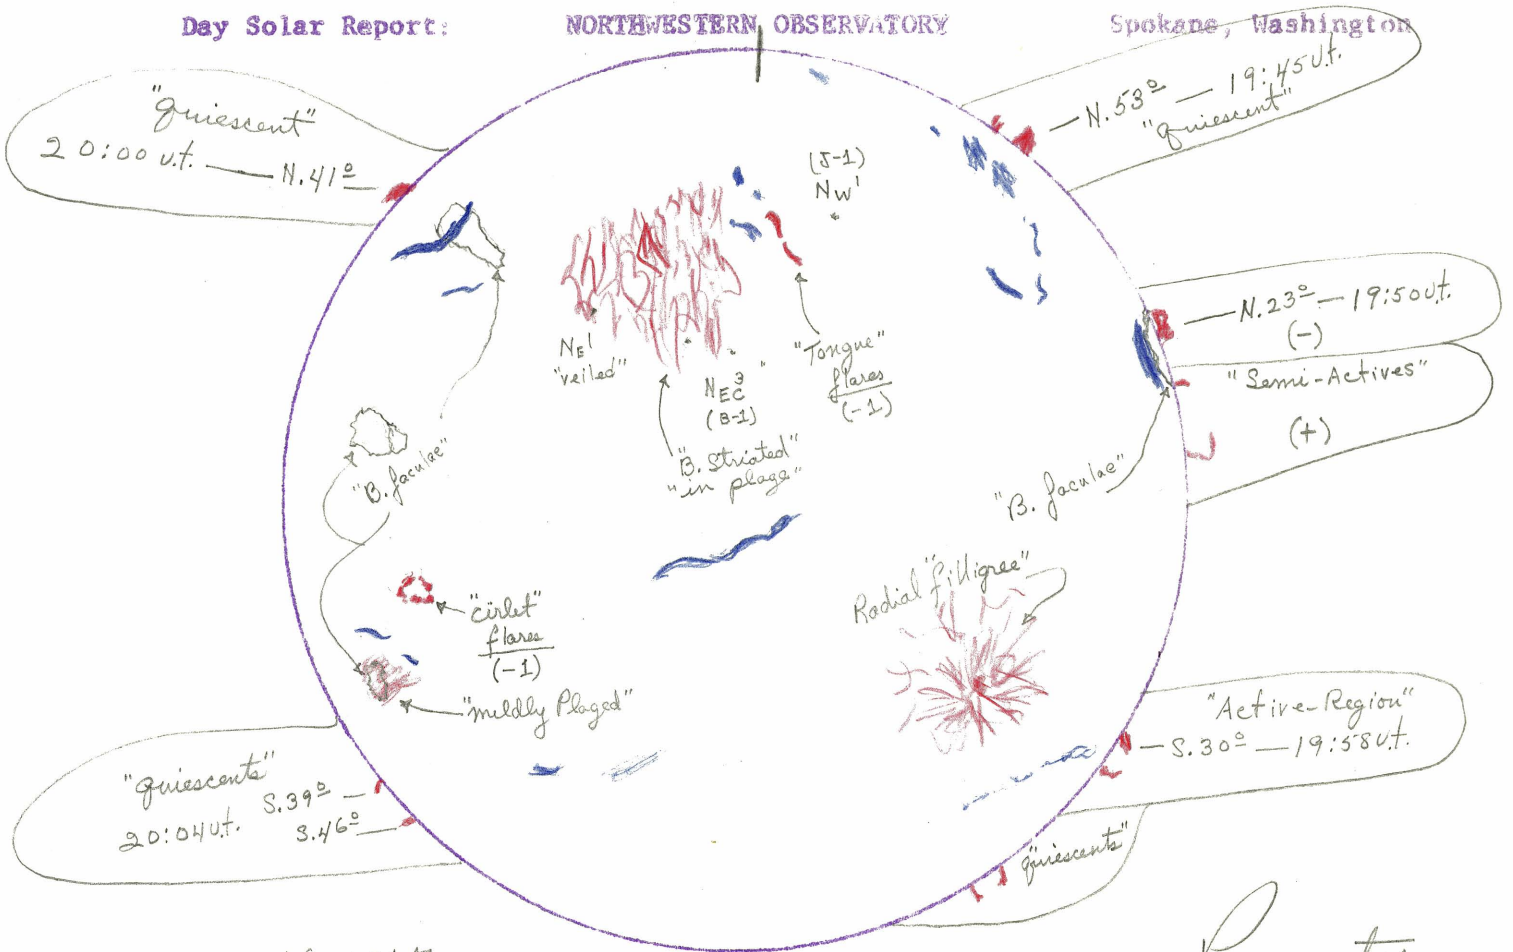 Day Solar Report: NORTHWESTERN OBSERVATORY Spokane, Washington
"Quiescent"
20:00 u.t. — N.41º
N.53º — 19:45 u.t.
"Quiescent"
(J-1)
NW¹
N.23º — 19:50 u.t.
(-)
"Semi-Actives"
(+)
NE¹
"veiled"
NEC³
(B-1)
"Tongue"
flares
(-1)
"B. Striated"
"in plage"
"B. faculae"
"B. faculae"
Radial "filligree"
"cirlet"
flares
(-1)
"mildly Plaged"
"Active-Region"
S.30º — 19:58 u.t.
"quiescents"
S.39º
20:04 u.t. S.46º
"quiescents"